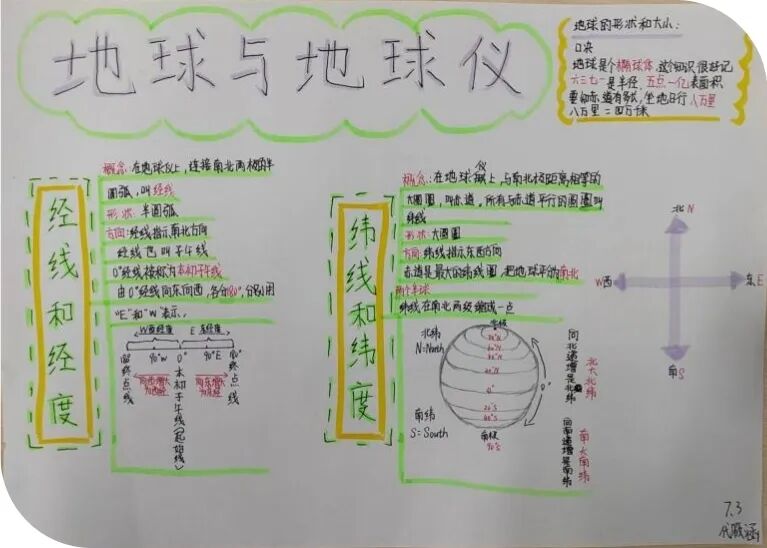 地球与地球仪
地球的形状和大小:
口决
地球是个椭球体,这个知识很好记
六三七一是半径,五点一亿表面积
要问赤道有多长,坐地日行八万里
八万里=四万千米
经线和经度
概念:在地球仪上,连接南北两极的半
圆弧,叫经线
形状:半圆弧
方向:经线指示南北方向
经线也叫子午线
0°经线被称为本初子午线
由0°经线向东向西,各分180°,分别用
"E"和"W"表示,
W西经度 E东经度
90°W 0° 90°E
终点线
向西增大为西经
本初子午线(起始线)
向东增大为东经
终点线
纬线和纬度
仪
概念:在地球上,与南北极距离相等的
大圆圈,叫赤道,所有与赤道平行的圆圈叫
纬线
形状:大圆圈
方向:纬线指示东西方向
赤道是最大的纬线圈,把地球平分南北
两个半球
纬线在南北两级缩成一点
北纬
N=North
0°
南纬
S=South
南极
90°S
0°
向北递增是北纬
北大北纬
向南递增是南纬
南大南纬
北N
W西
东E
南S
7.3